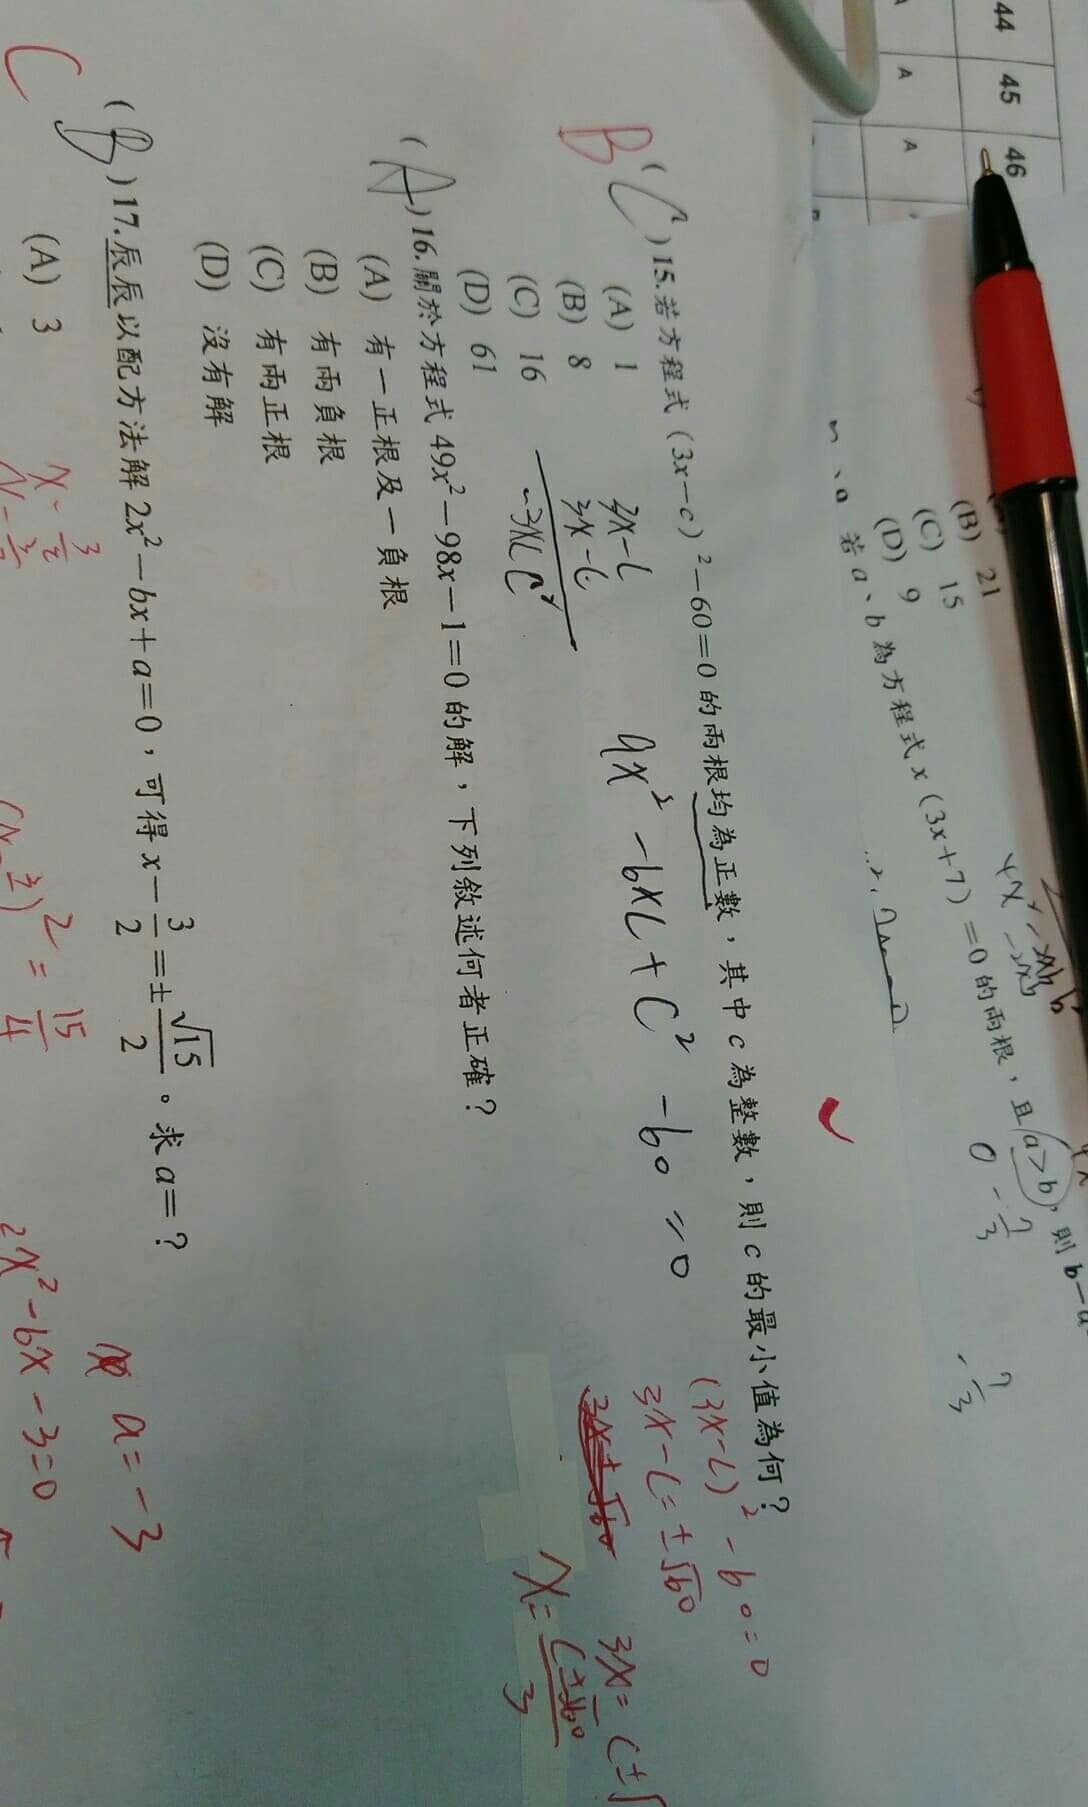 44 45 46
A A
(B) 21
(C) 15
(D) 9
若 a、b 為方程式 x(3x+7)=0 的兩根，且 a>b，則 b-a
0 -7/3
-7/3
B (C) 15. 若方程式 (3x-c)²-60=0 的兩根均為正數，其中 c 為整數，則 c 的最小值為何？
(A) 1
(B) 8
(C) 16
(D) 61
3x-c
3x-c
-3xc c²
9x²-6xc+c²-60=0
(3x-c)²-60=0
3x-c=±√60
3x=c±√
x=(c±√60)/3
(A) 16. 關於方程式 49x²-98x-1=0 的解，下列敘述何者正確？
(A) 有一正根及一負根
(B) 有兩負根
(C) 有兩正根
(D) 沒有解
C (B) 17. 辰辰以配方法解 2x²-bx+a=0，可得 x-3/2=±√15/2。求 a=？
(A) 3
x-3/2
(x-3/2)²=15/4
a=-3
2x²-6x-3=0